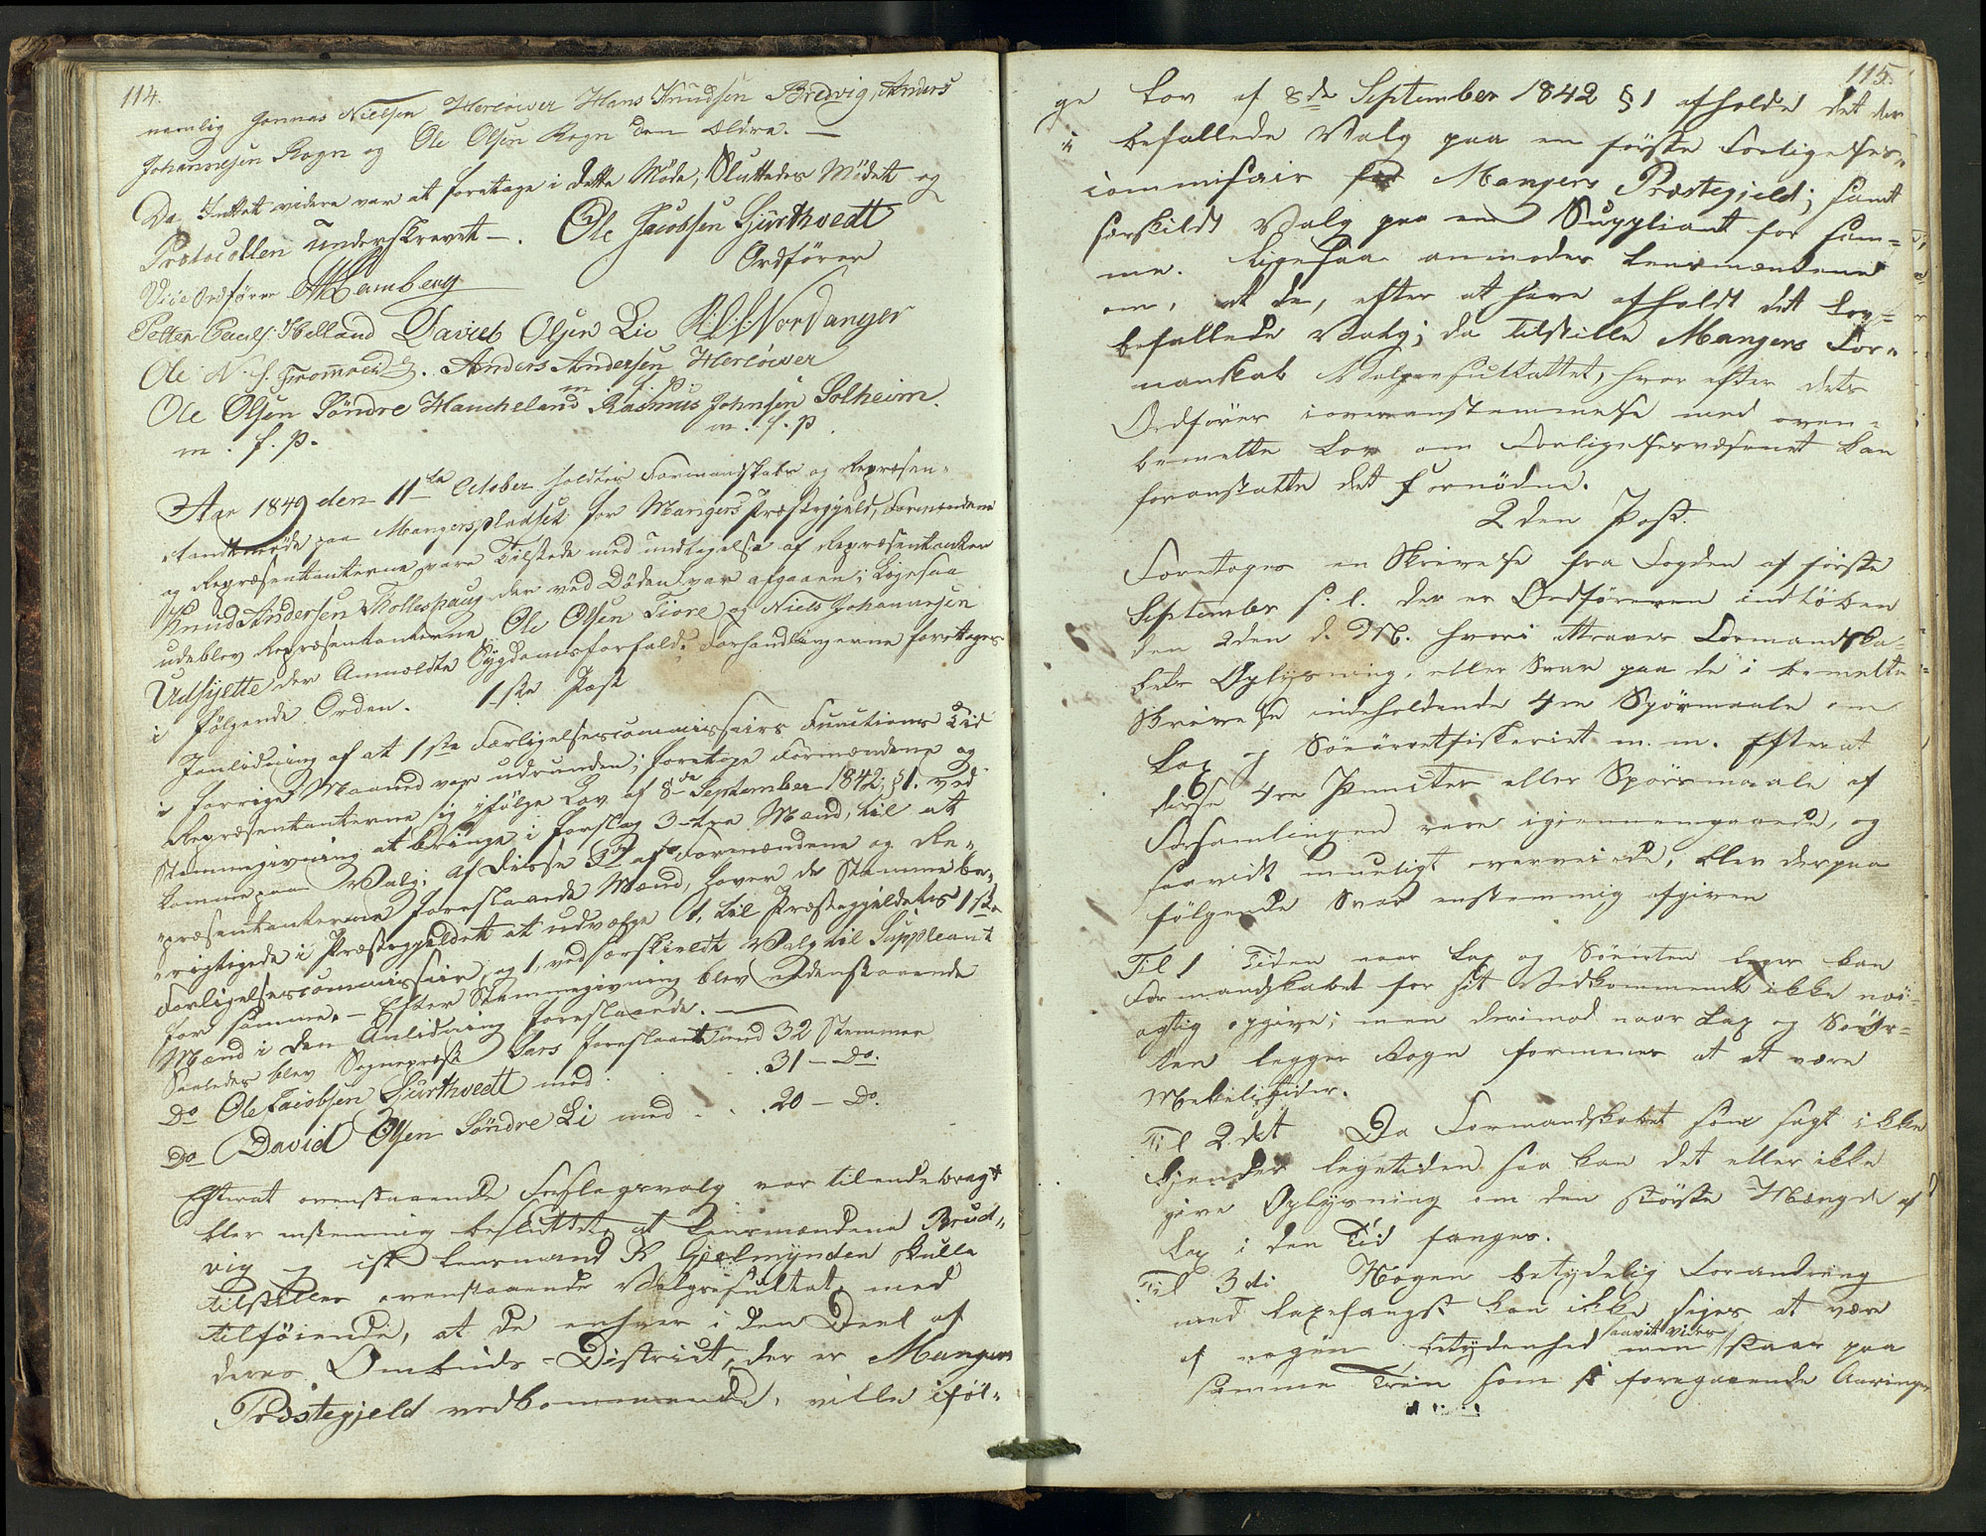 114.
nemlig Jonnas Nielsen Herlöwer Hans Knudsen Bredvig, Anders
Johannesen Rogn og Ole Olsen Rogn den Ældre. —
Da Intet videre var at foretage i dette Møde, Sluttedes Mödet og
Protocollen underskrevet —.
Ole Jacobsen Gjurthvedt
Ordförer
Vice Ordförer Lamberg
Petter Helland David Olsen Lie Nordanger
Ole N. S. Anders Andersen Herlöwer
m. f. P.
Ole Olsen Söndre Haucheland Rasmus Johnsen Solheim.
m. f. P.
m. f. P.
Aar 1849 den 11te October holdtes Formandskabs og Repræsen-
tantmøde paa Mangerspladset for Mangers Præstegjæld, Formændene
og Repræsentanterne vare Tilstede med undtagelse af Repræsentanten
Knud Andersen Tolleshaug der ved Döden var afgaaen; Ligesaa
udeblev Repræsentanterne Ole Olsen Fiore og Niels Johannesen
Udhjette der Anmeldte Sygdomsforfald. Forhandlingerne foretoges
i følgende Orden.
1ste Post
Ianledning af at 1ste Forligelsescommissairs Functions Tid
i forrige Maaned var udrunden; foretoge Formændene og
Repræsentanterne sig ifölge Lov af 8de September 1842, §1. ved
Stemmegivning at bringe i forslag 3-tre Mænd, til at
komme paa Valg; af disse 3 af Formændene og Re-
præsentanterne foreslaaede Mænd, haver de Stemmebe-
rigtigede i Præstegjeldet at udvælge 1, til Præstegjeldets 1ste
Forligelsescommissair, og 1, ved særskildt Valg til Suppleant
for samme. — Efter Stemmegivning blev Nedenstaaende
Mænd i den Anledning foreslaaede. —
Saaledes blev Sogneprest Lars foreslaaet med 32 Stemmer
Do Ole Jacobsen Gjurthvedt med . . . 31 — Do.
Do David Olsen Söndre Li med . . . 20 — Do.
Efterat ovenstaaende Forslagsvalg var tilendebragt
blev enstemmig besluttet, at Lensmændene Brud-
vig og Lensmand K Gjelmynden skulle
tilstilles ovenstaaende Valgresultat, med
tilföiende, at de enhver i den Deel af
deres Ombuds-District, der er Mangers
Præstegjeld vedkommende, ville iföl-
115.
ge Lov af 8de September 1842 §1 afholde det der
i befallede Valg paa en förste Forligelses-
commisair for Mangers Præstegjeld; samt
særskildt Valg paa en Suppliant for sam-
me. Ligesaa anmodes Lensmændene
om, at de, efter at have afholdt det Lov-
befallede Valg; da tilstille Mangers For-
manskab Valgresultattet, hvor efter dets
Ordförer i overenstemmelse med oven-
bemelte Lov om Forligelsesvæsenet kan
foranstalte det fornödne.
2den Post.
Foretoges en Skrivelse fra Fogden af förste
September s. l. der er Ordföreren indlöben
den 2den d. M. hvori attraaes Formandska-
bets Oplysning, eller Svar paa de i bemelte
Skrivelse indeholdende 4re Spörsmaale om
Lax og Söeörretfiskeriet m. m. Efter at
disse 4re Puncter eller Spörsmaale af
Forsamlingen vare igjennemgaaede, og
saavidt mueligt overveiede, blev derpaa
fölgende Svar enstemmig afgiven
Til 1 Tiden naar Lax og Söörreten leger kan
Formandskabet for sit Vedkommende ikke nöi-
agtig opgive; men derimod naar Lax og Söör-
ten legger Rogn formenes at at være
Mekelitider.
Til 2det Da Formandskabet som sagt ikke
kjender legetiden saa kan det eller ikke
give Oplysning om den störste Mængde af
Lax i den Tid fanges.
Til 3di Nogen betydelig Forandring
med Laxefangst kan ikke siges at være
af nogen betydenhed men saavit vides staar paa
samme Trin som i foregaaende Aaringer